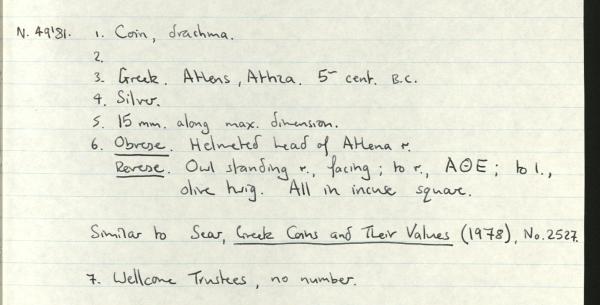 N. 49'81. 1. Coin, drachma.
2.
3. Greek. Athens, Attica. 5th cent. B.C.
4. Silver.
5. 15 mm. along max. dimension.
6. Obverse. Helmeted head of Athena r.
Reverse. Owl standing r., facing; to r., ΑΘΕ; to l.,
olive twig. All in incuse square.
Similar to Sear, Greek Coins and Their Values (1978), No. 2527.
7. Wellcome Trustees, no number.